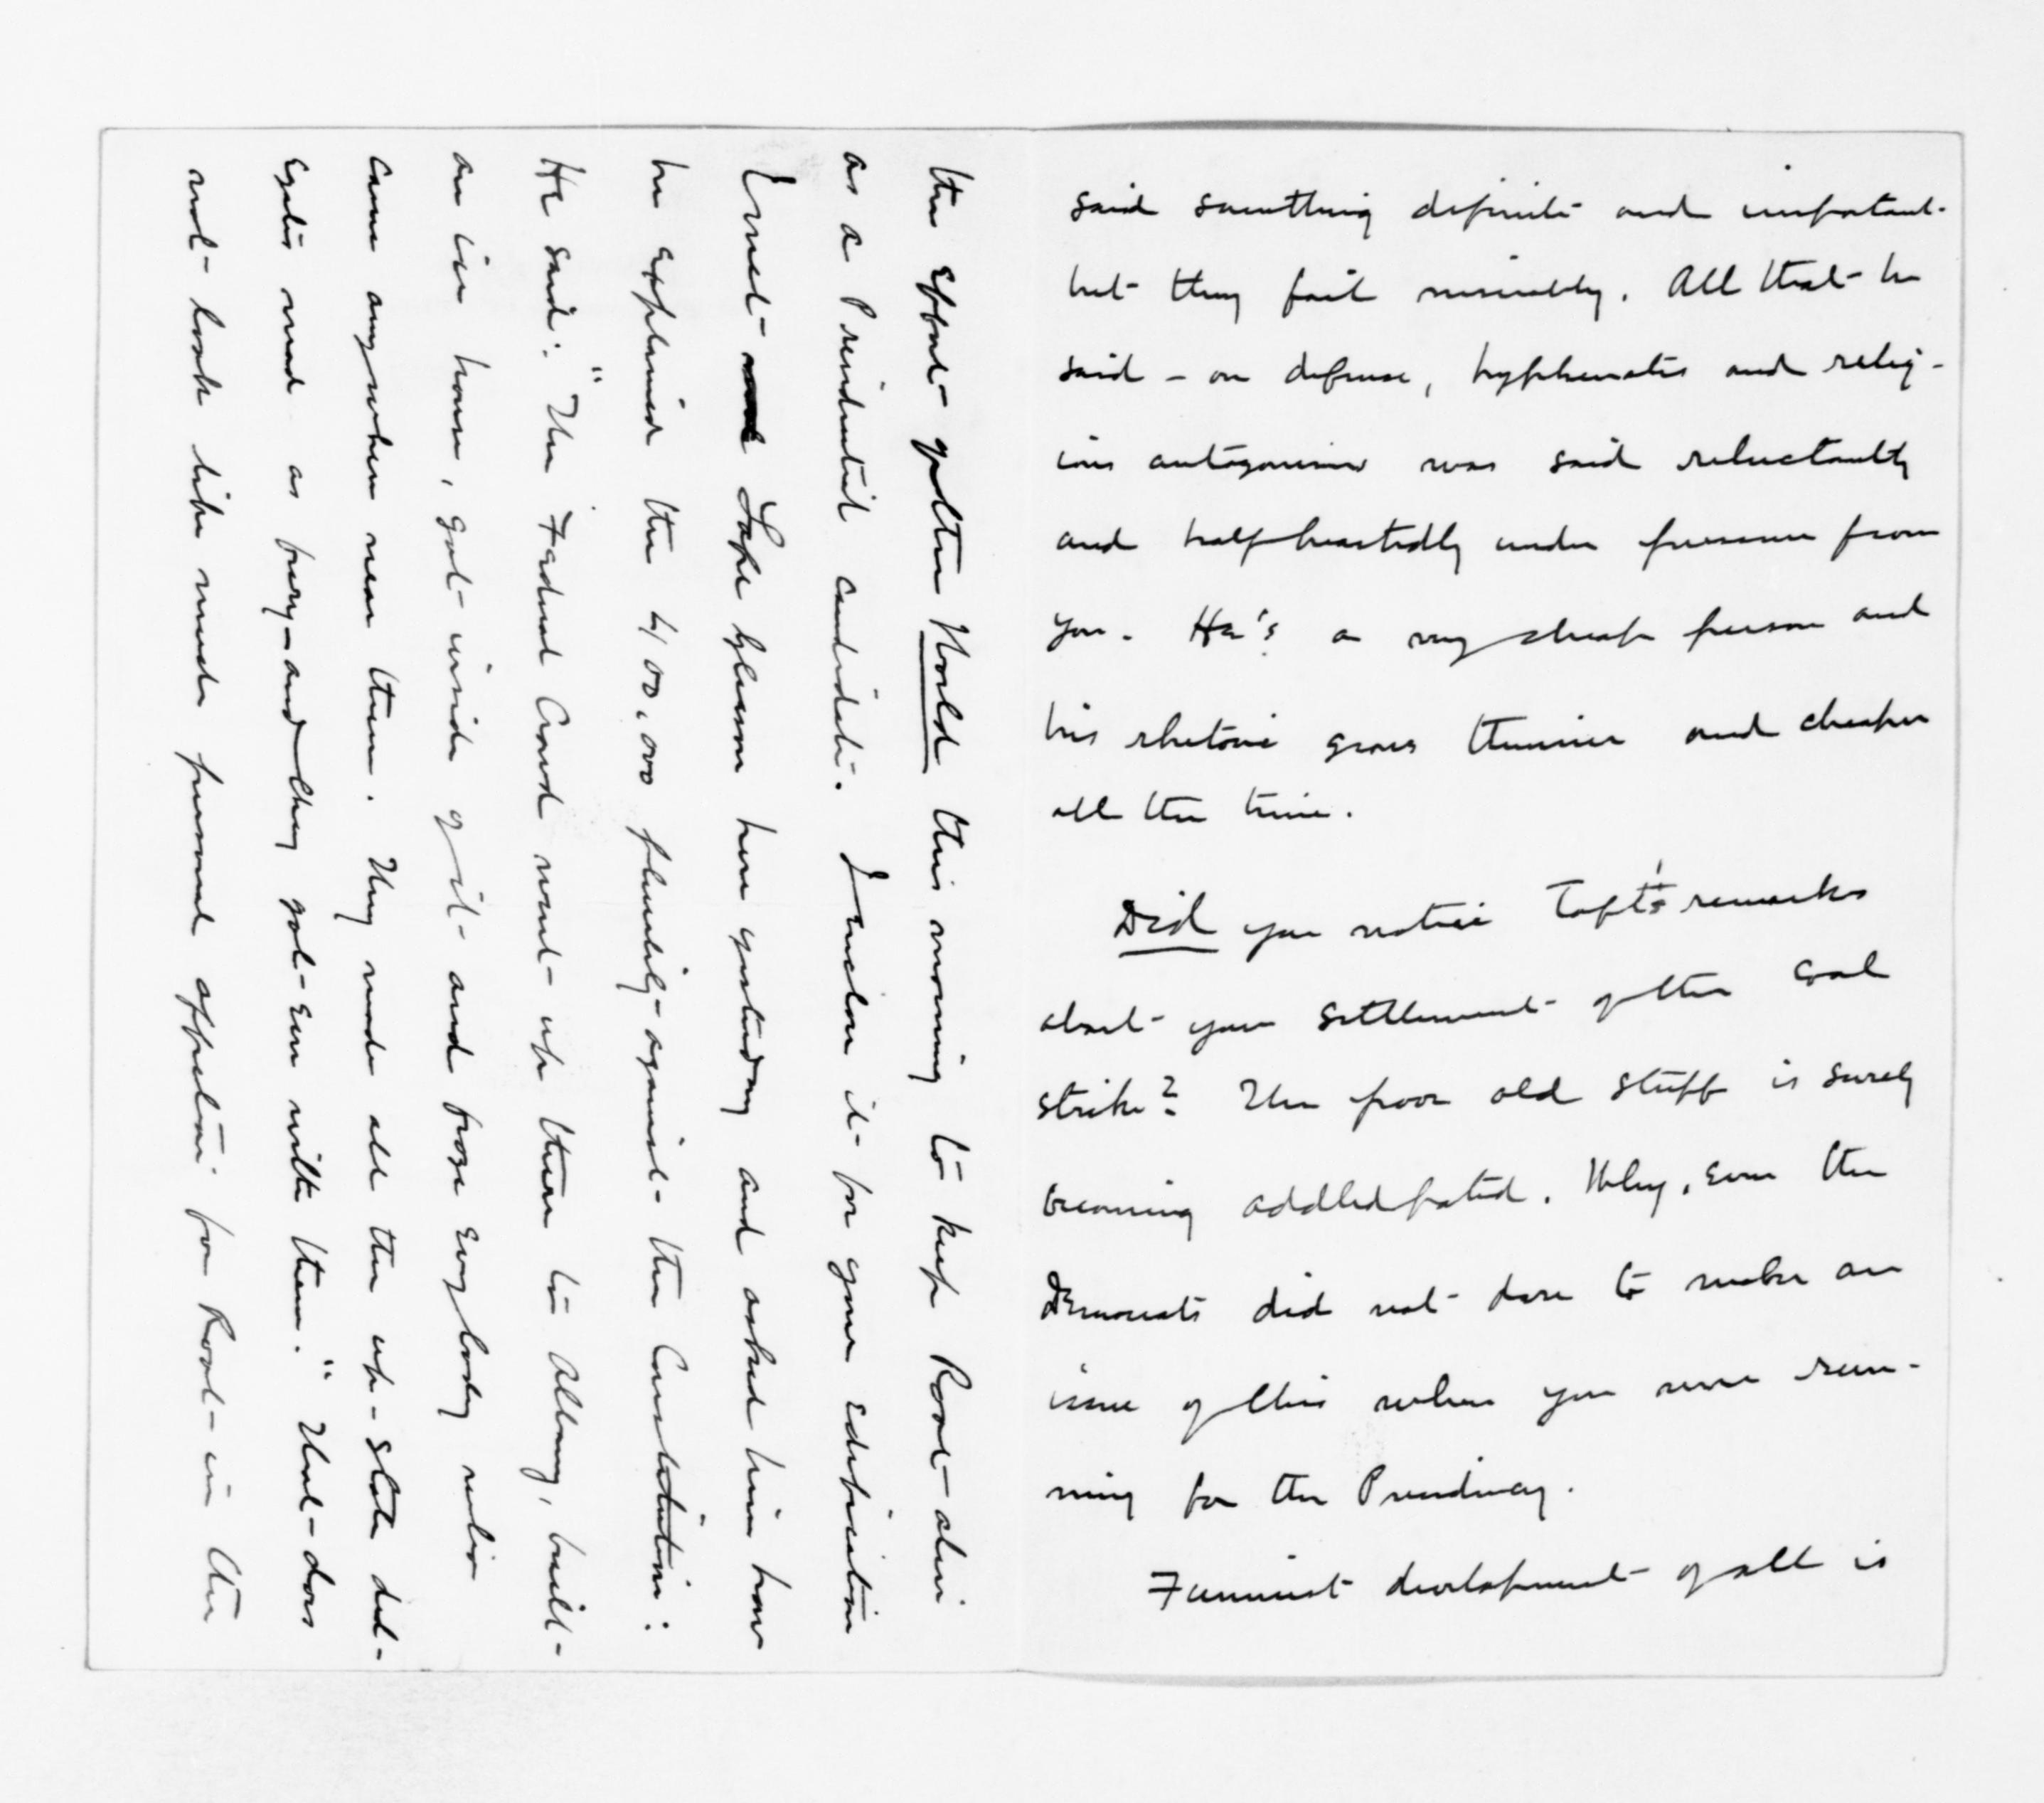 said something definite and important
but they fail miserably. All that he
said – on defense, hyphenates and relig-
ious antagonism was said reluctantly
and halfheartedly under pressure from
you. He's a very cheap person and
his rhetoric grows thinner and cheaper
all the time.
Did you notice Taft's remarks
about your settlement of the coal
strike? The poor old stuff is surely
becoming addledpated. Why, even the
democrats did not dare to make an
issue of this when you were run-
ning for the Presidency.
Funniest development of all is
the effort of the World this morning to keep Root alive
as a Presidential candidate. I enclose it for your edification
I met Lafe Gleason here yesterday and asked him how
he explained the 400,000 plurality against the Constitution:
He said: "The Federal Crowd went up there to Albany, built
an ice house, got inside of it and froze everybody who
came anywhere near them. They made all the up-state del-
egates mad as fury and they got even with them." That does
not look like much personal appeal for Root in the